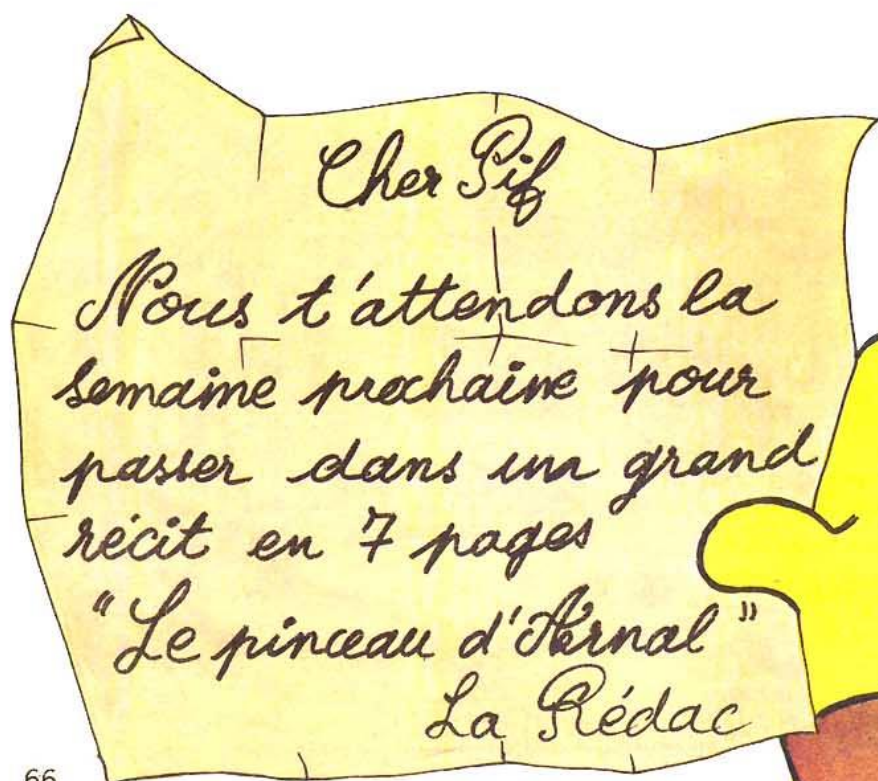 Cher Pif
Nous t'attendons la
semaine prochaine pour
passer dans un grand
récit en 7 pages
"Le pinceau d'Arnal"
La Rédac
66